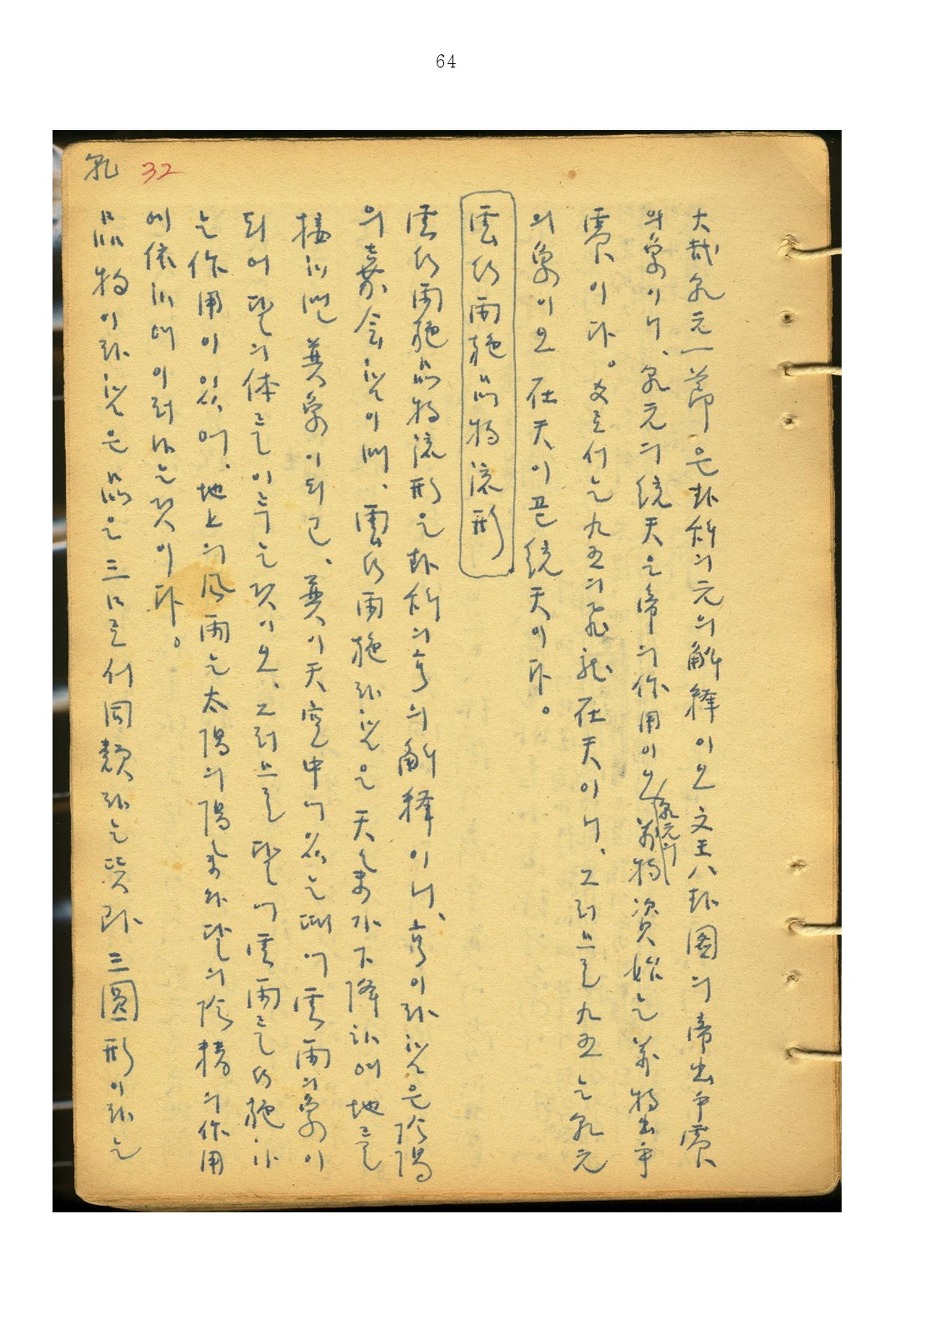 64
乾 32
大哉乾元一節은 卦辭의 元의 解釋이오 文王八卦圖의 帝出乎震
의 象이니、乾元의 統天은 帝의 作用이오 乾元의 萬物資始는 萬物出乎
震이다。爻로서는 九五의 飛龍在天이니、그러므로 九五는 乾元
의 象이오 在天이 곧 統天이다。
雲行雨施品物流形
雲行雨施品物流形은 卦辭의 亨의 解釋이니、亨이라 함은 陰陽
의 嘉會함이며、雲行雨施라 함은 天氣가 下降하야 地를
接하면 巽象이 되고、巽이 天空中에 있는 때에 雲雨의 象이
되어 坎의 体를 이루는 것이오、그러므로 坎에 雲雨를 行施하
는 作用이 있으며、地上의 風雨는 太陽의 陽氣와 달의 陰精의 作用
에 依하야 이러나는 것이다。
品物이라 함은 品은 三口로서 同類라는 뜻과 三圓形이라는